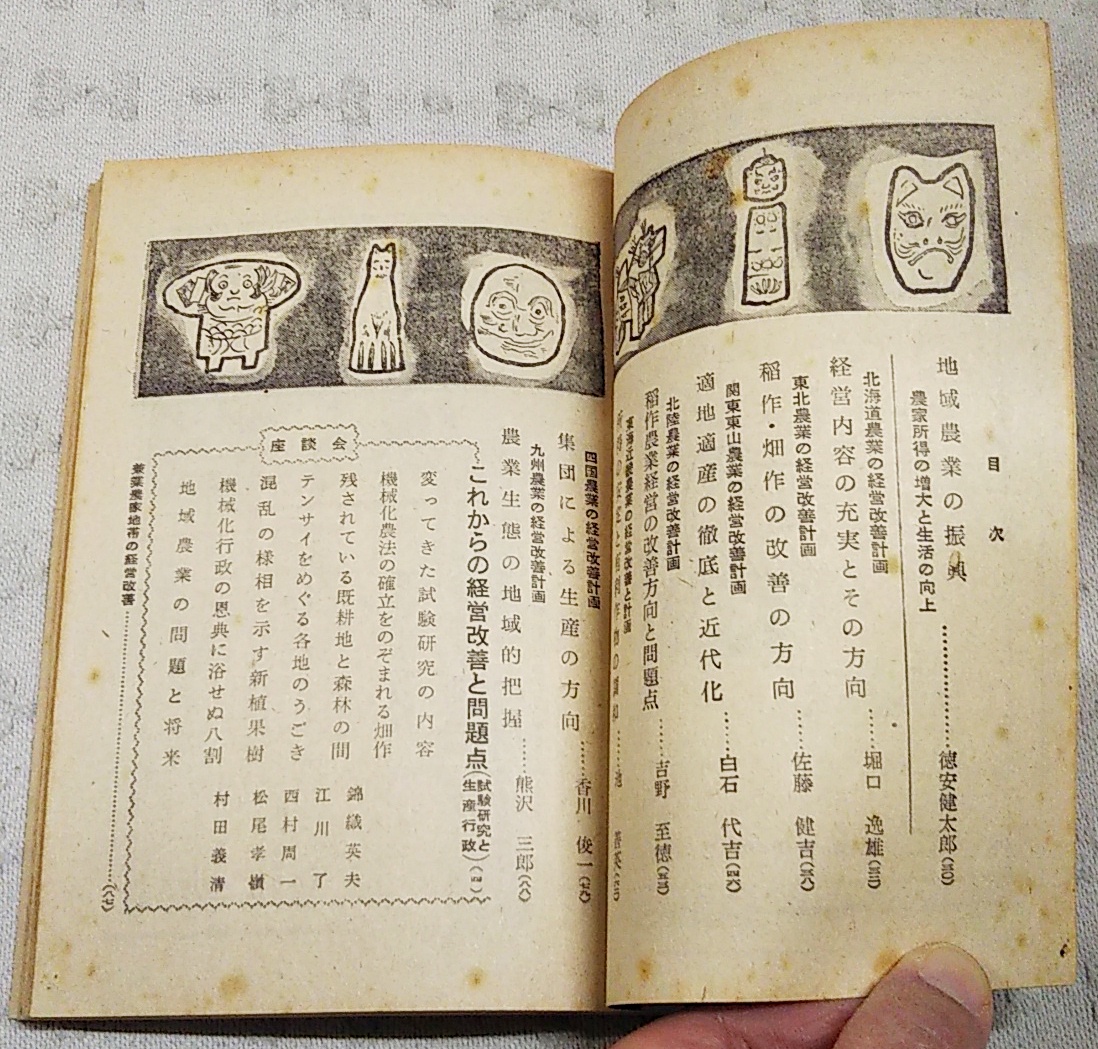 目次
地域農業の振興……………徳安健太郎(三〇)
農家所得の増大と生活の向上
北海道農業の経営改善計画
経営内容の充実とその方向……堀口 逸雄(三三)
東北農業の経営改善計画
稲作・畑作の改善の方向……佐藤 健吉(三八)
関東東山農業の経営改善計画
適地適産の徹底と近代化……白石 代吉(四六)
北陸農業の経営改善計画
稲作農業経営の改善方向と問題点……吉野 至徳(五三)
東海近畿農業の経営改善と計画
四国農業の経営改善計画
集団による生産の方向……香川 俊一(七九)
九州農業の経営改善計画
農業生態の地域的把握……熊沢 三郎(八八)
座談会
これからの経営改善と問題点(試験研究と生産行政)(四)
変ってきた試験研究の内容
機械化農法の確立をのぞまれる畑作
残されている既耕地と森林の間
テンサイをめぐる各地のうごき
混乱の様相を示す新植果樹
機械化行政の恩典に浴せぬ八割
地域農業の問題と将来
錦織英夫
江川了
西村周一
松尾孝嶺
村田義清
養蚕農家地帯の経営改善……………(八七)